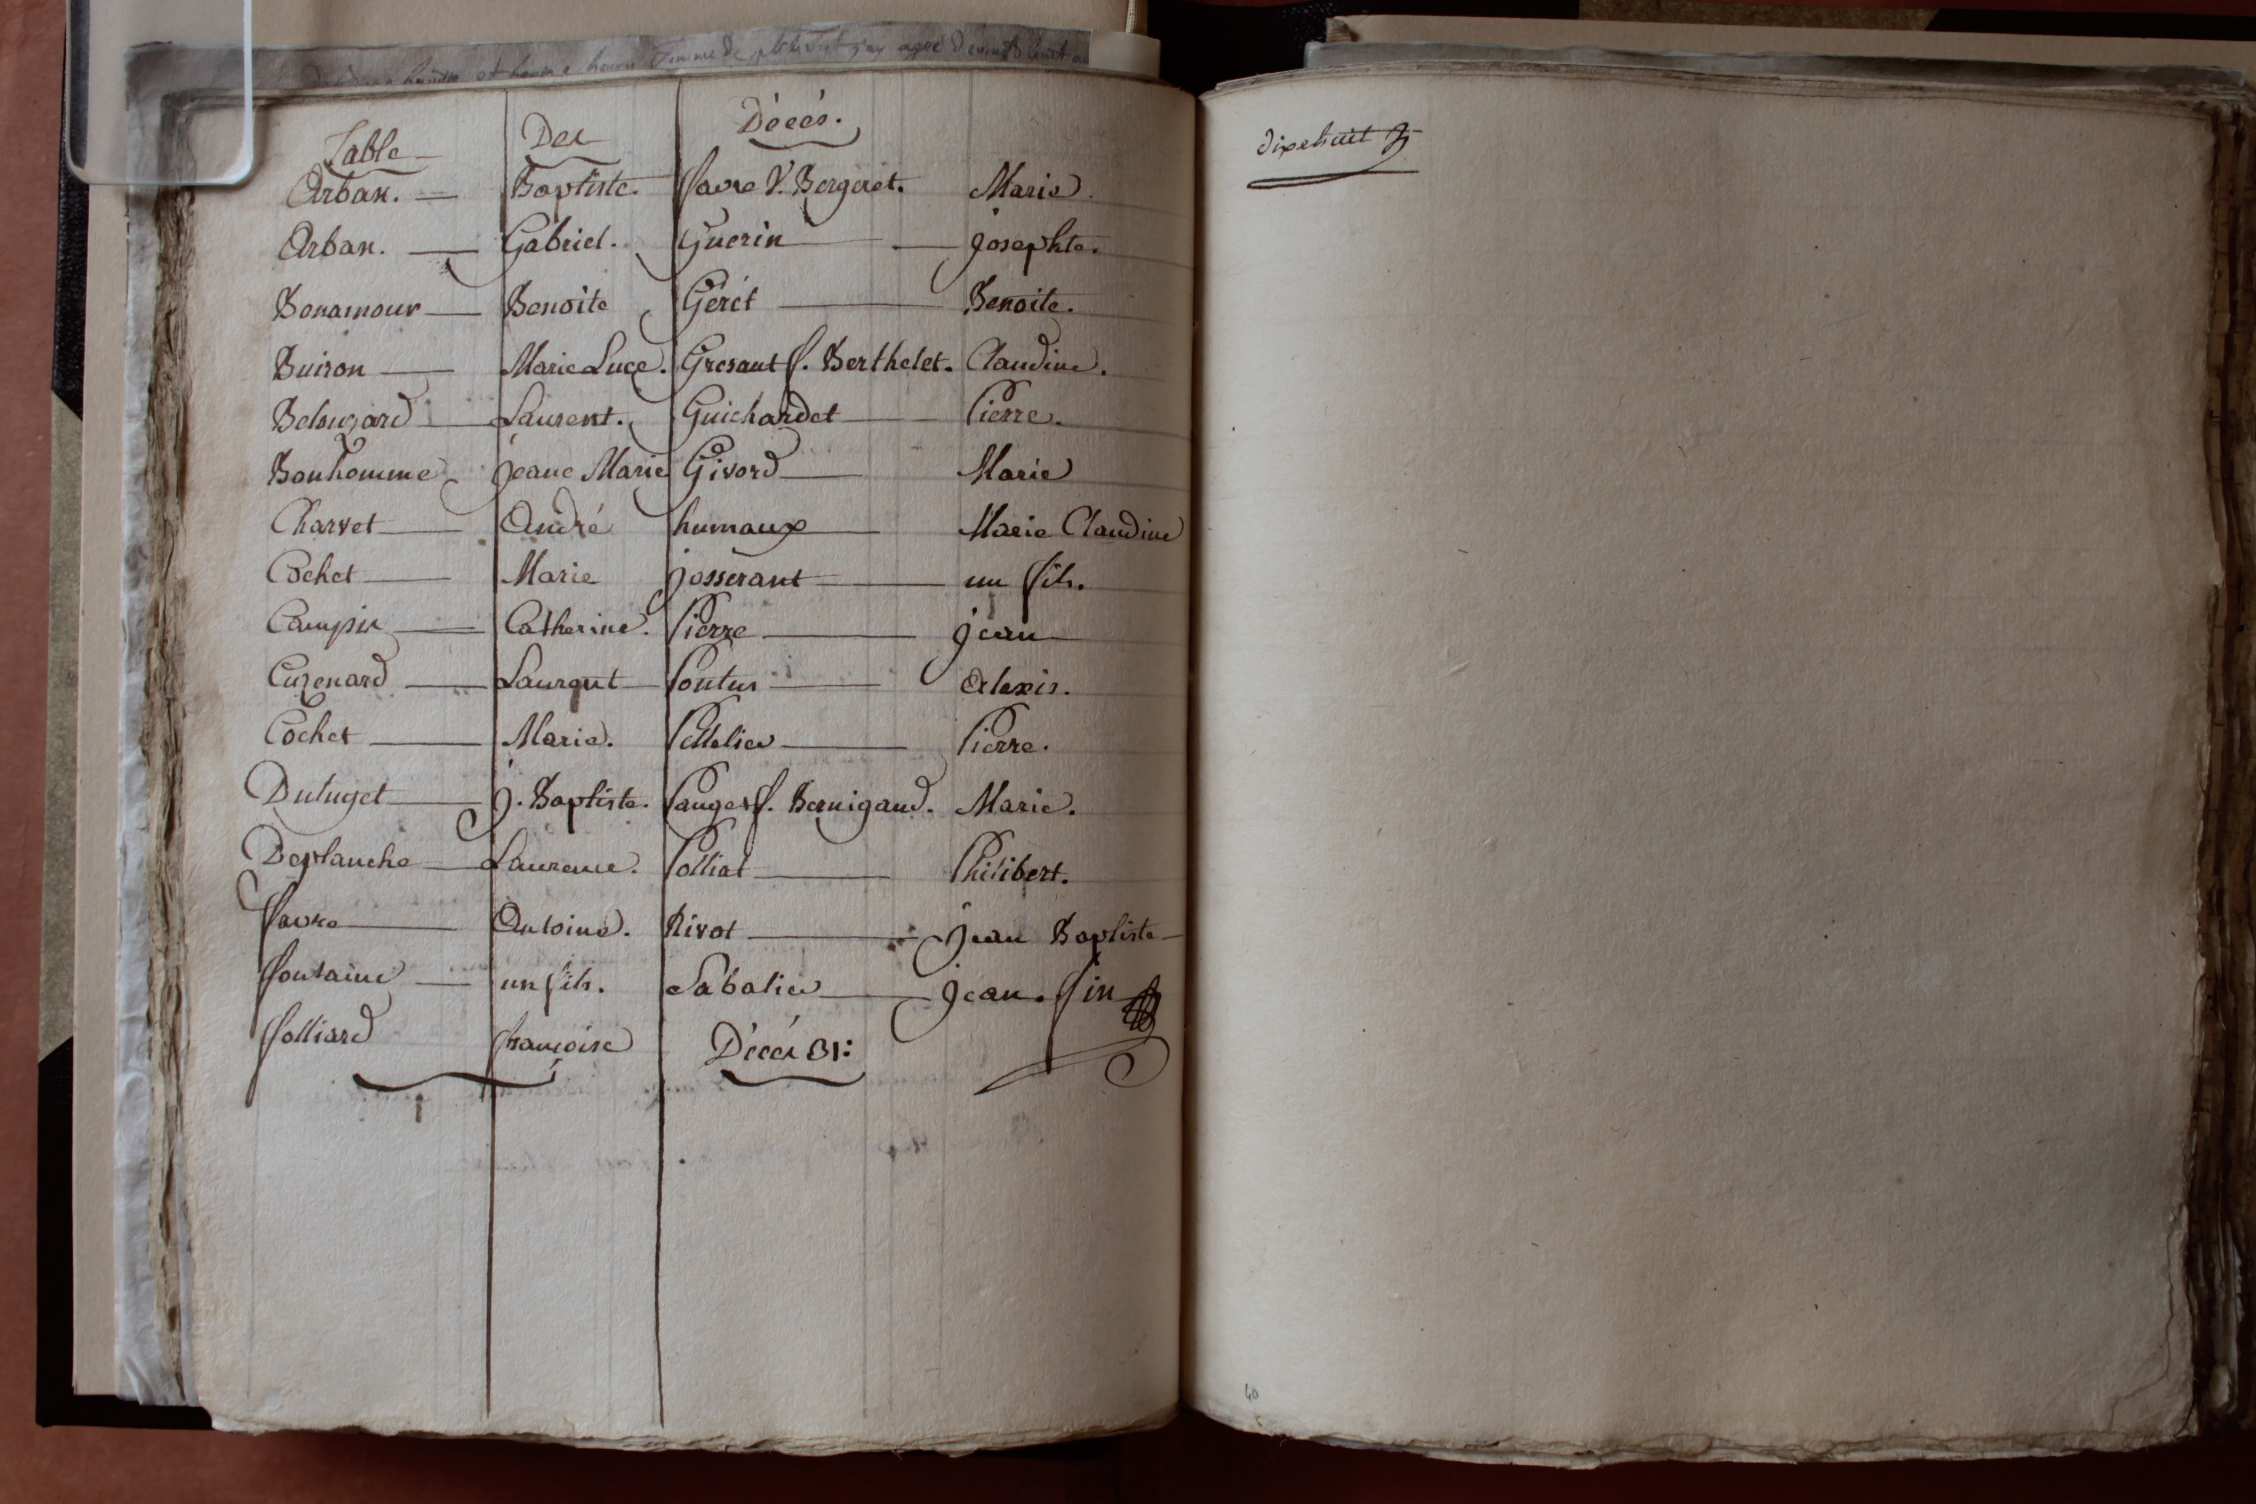 Table Des Décés.
Arban. Baptiste. favre V. Bergeret. Marie.
Arban. Gabriel. Guerin josephte.
Bonamour Benoite Gérét Benoite.
Buiron Marie Luce. Gresant f. Berthelet. Claudine.
Belouzard Laurent. Guichardet Pierre.
Bonhomme jeane Marie Givord Marie
Charvet André humaux Marie Claudine
Cochet Marie josserant un fils.
Campin Catherine. Pierre jean
Cuzenard Laurent Pontus Alexis.
Cochet Marie. Pelletier Pierre.
Dutuget j. Baptiste. Pauget f. Bernigaud. Marie.
Deplanche Laurence. Polliat Philibert.
favre Antoine. Rivot jean Baptiste
fontaine un fils. Sabatier jean. fin
folliard françoise Décés 31:
dixehuit
40